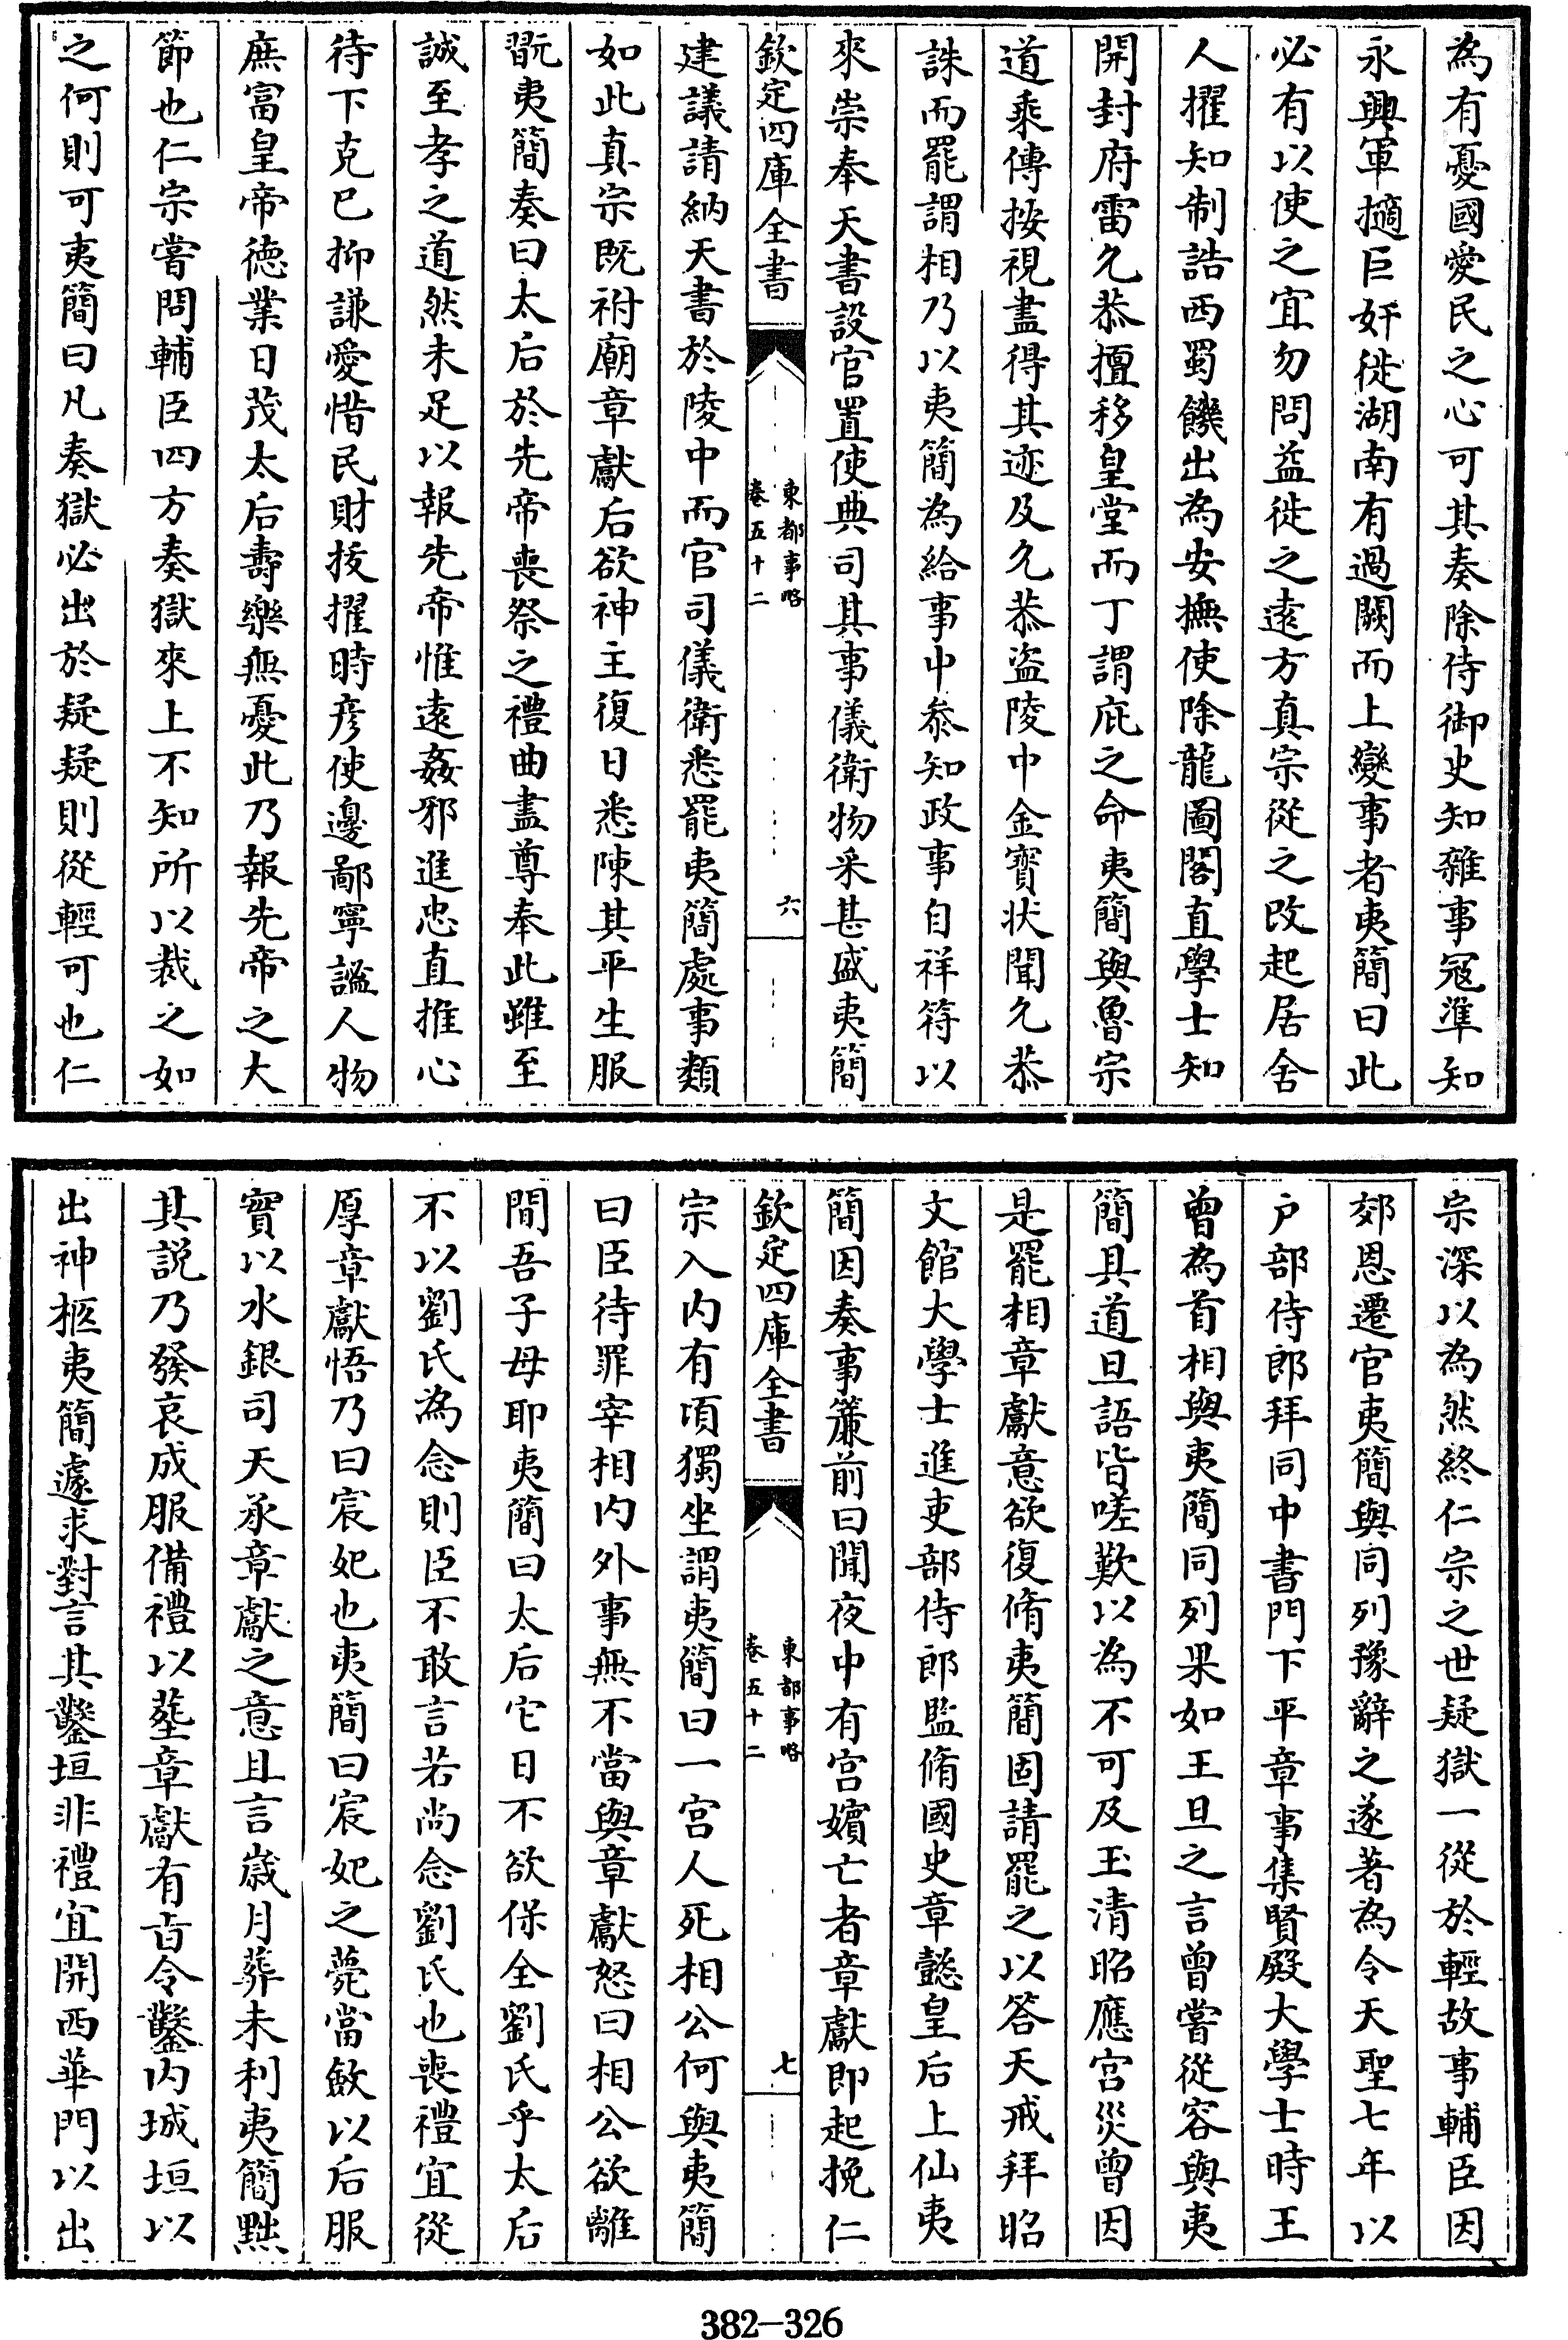 為有憂國愛民之心可其奏除侍御史知雜事冦準知
永興軍擿巨奸徙湖南有過闕而上變事者夷簡曰此
必有以使之宜勿問益徙之逺方真宗從之改起居舍
人擢知制誥西蜀饑出為安撫使除龍圖閣直學士知
開封府雷允恭擅移皇堂而丁謂庇之命夷簡與魯宗
道乘傳按視盡得其迹及允恭盜陵中金寳状聞允恭
誅而罷謂相乃以夷簡為給事中叅知政事自祥符以
來崇奉天書設官置使典司其事儀衛物采甚盛夷簡
欽定四庫全書
東都事略
卷五十二
六
建議請納天書於陵中而官司儀衛悉罷夷簡處事類
如此真宗既祔廟章獻后欲神主復日悉陳其平生服
翫夷簡奏曰太后於先帝喪祭之禮曲盡尊奉此雖至
誠至孝之道然未足以報先帝惟逺姦邪進忠直推心
待下克己抑謙愛惜民財拔擢時彦使邊鄙寧謐人物
庶富皇帝德業日茂太后壽樂無憂此乃報先帝之大
節也仁宗嘗問輔臣四方奏獄來上不知所以裁之如
之何則可夷簡曰凡奏獄必出於疑疑則從輕可也仁
宗深以為然終仁宗之世疑獄一從於輕故事輔臣因
郊恩遷官夷簡與同列豫辭之遂著為令天聖七年以
户部侍郎拜同中書門下平章事集賢殿大學士時王
曾為首相與夷簡同列果如王旦之言曾嘗從容與夷
簡具道旦語皆嗟歎以為不可及玉清昭應宫災曾因
是罷相章獻意欲復脩夷簡固請罷之以答天戒拜昭
文館大學士進吏部侍郎監脩國史章懿皇后上仙夷
簡因奏事簾前曰聞夜中有宫嬪亡者章獻即起挽仁
欽定四庫全書
東都事略
卷五十二
七
宗入内有頃獨坐謂夷簡曰一宫人死相公何與夷簡
曰臣待罪宰相内外事無不當與章獻怒曰相公欲離
間吾子母耶夷簡曰太后它日不欲保全劉氏乎太后
不以劉氏為念則臣不敢言若尚念劉氏也喪禮宜從
厚章獻悟乃曰宸妃也夷簡曰宸妃之薨當斂以后服
實以水銀司天承章獻之意且言歲月葬未利夷簡黜
其説乃發哀成服備禮以塟章獻有㫖令鑿内城垣以
出神柩夷簡遽求對言其鑿垣非禮宜開西華門以出
382—326